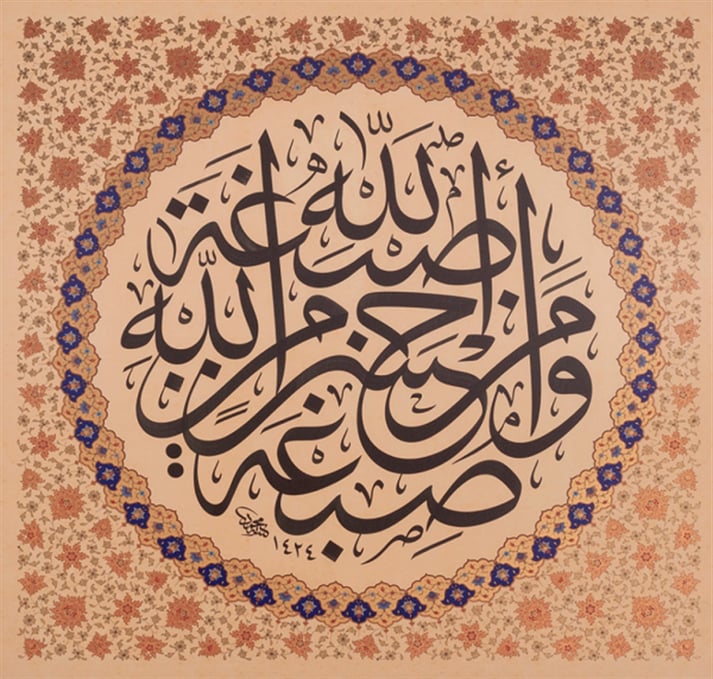 صِبْغَةَ اللّٰهِ وَمَنْ أَحْسَنُ مِنَ اللّٰهِ صِبْغَةً
١٤٢٤